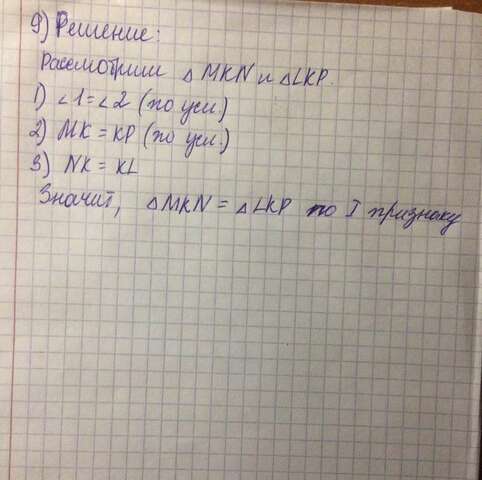 9) Решение:
Рассмотрим △MKN и △LKP.
1) ∠1=∠2 (по усл.)
2) MK = KP (по усл.)
3) NK = KL
Значит, △MKN = △LKP по I признаку